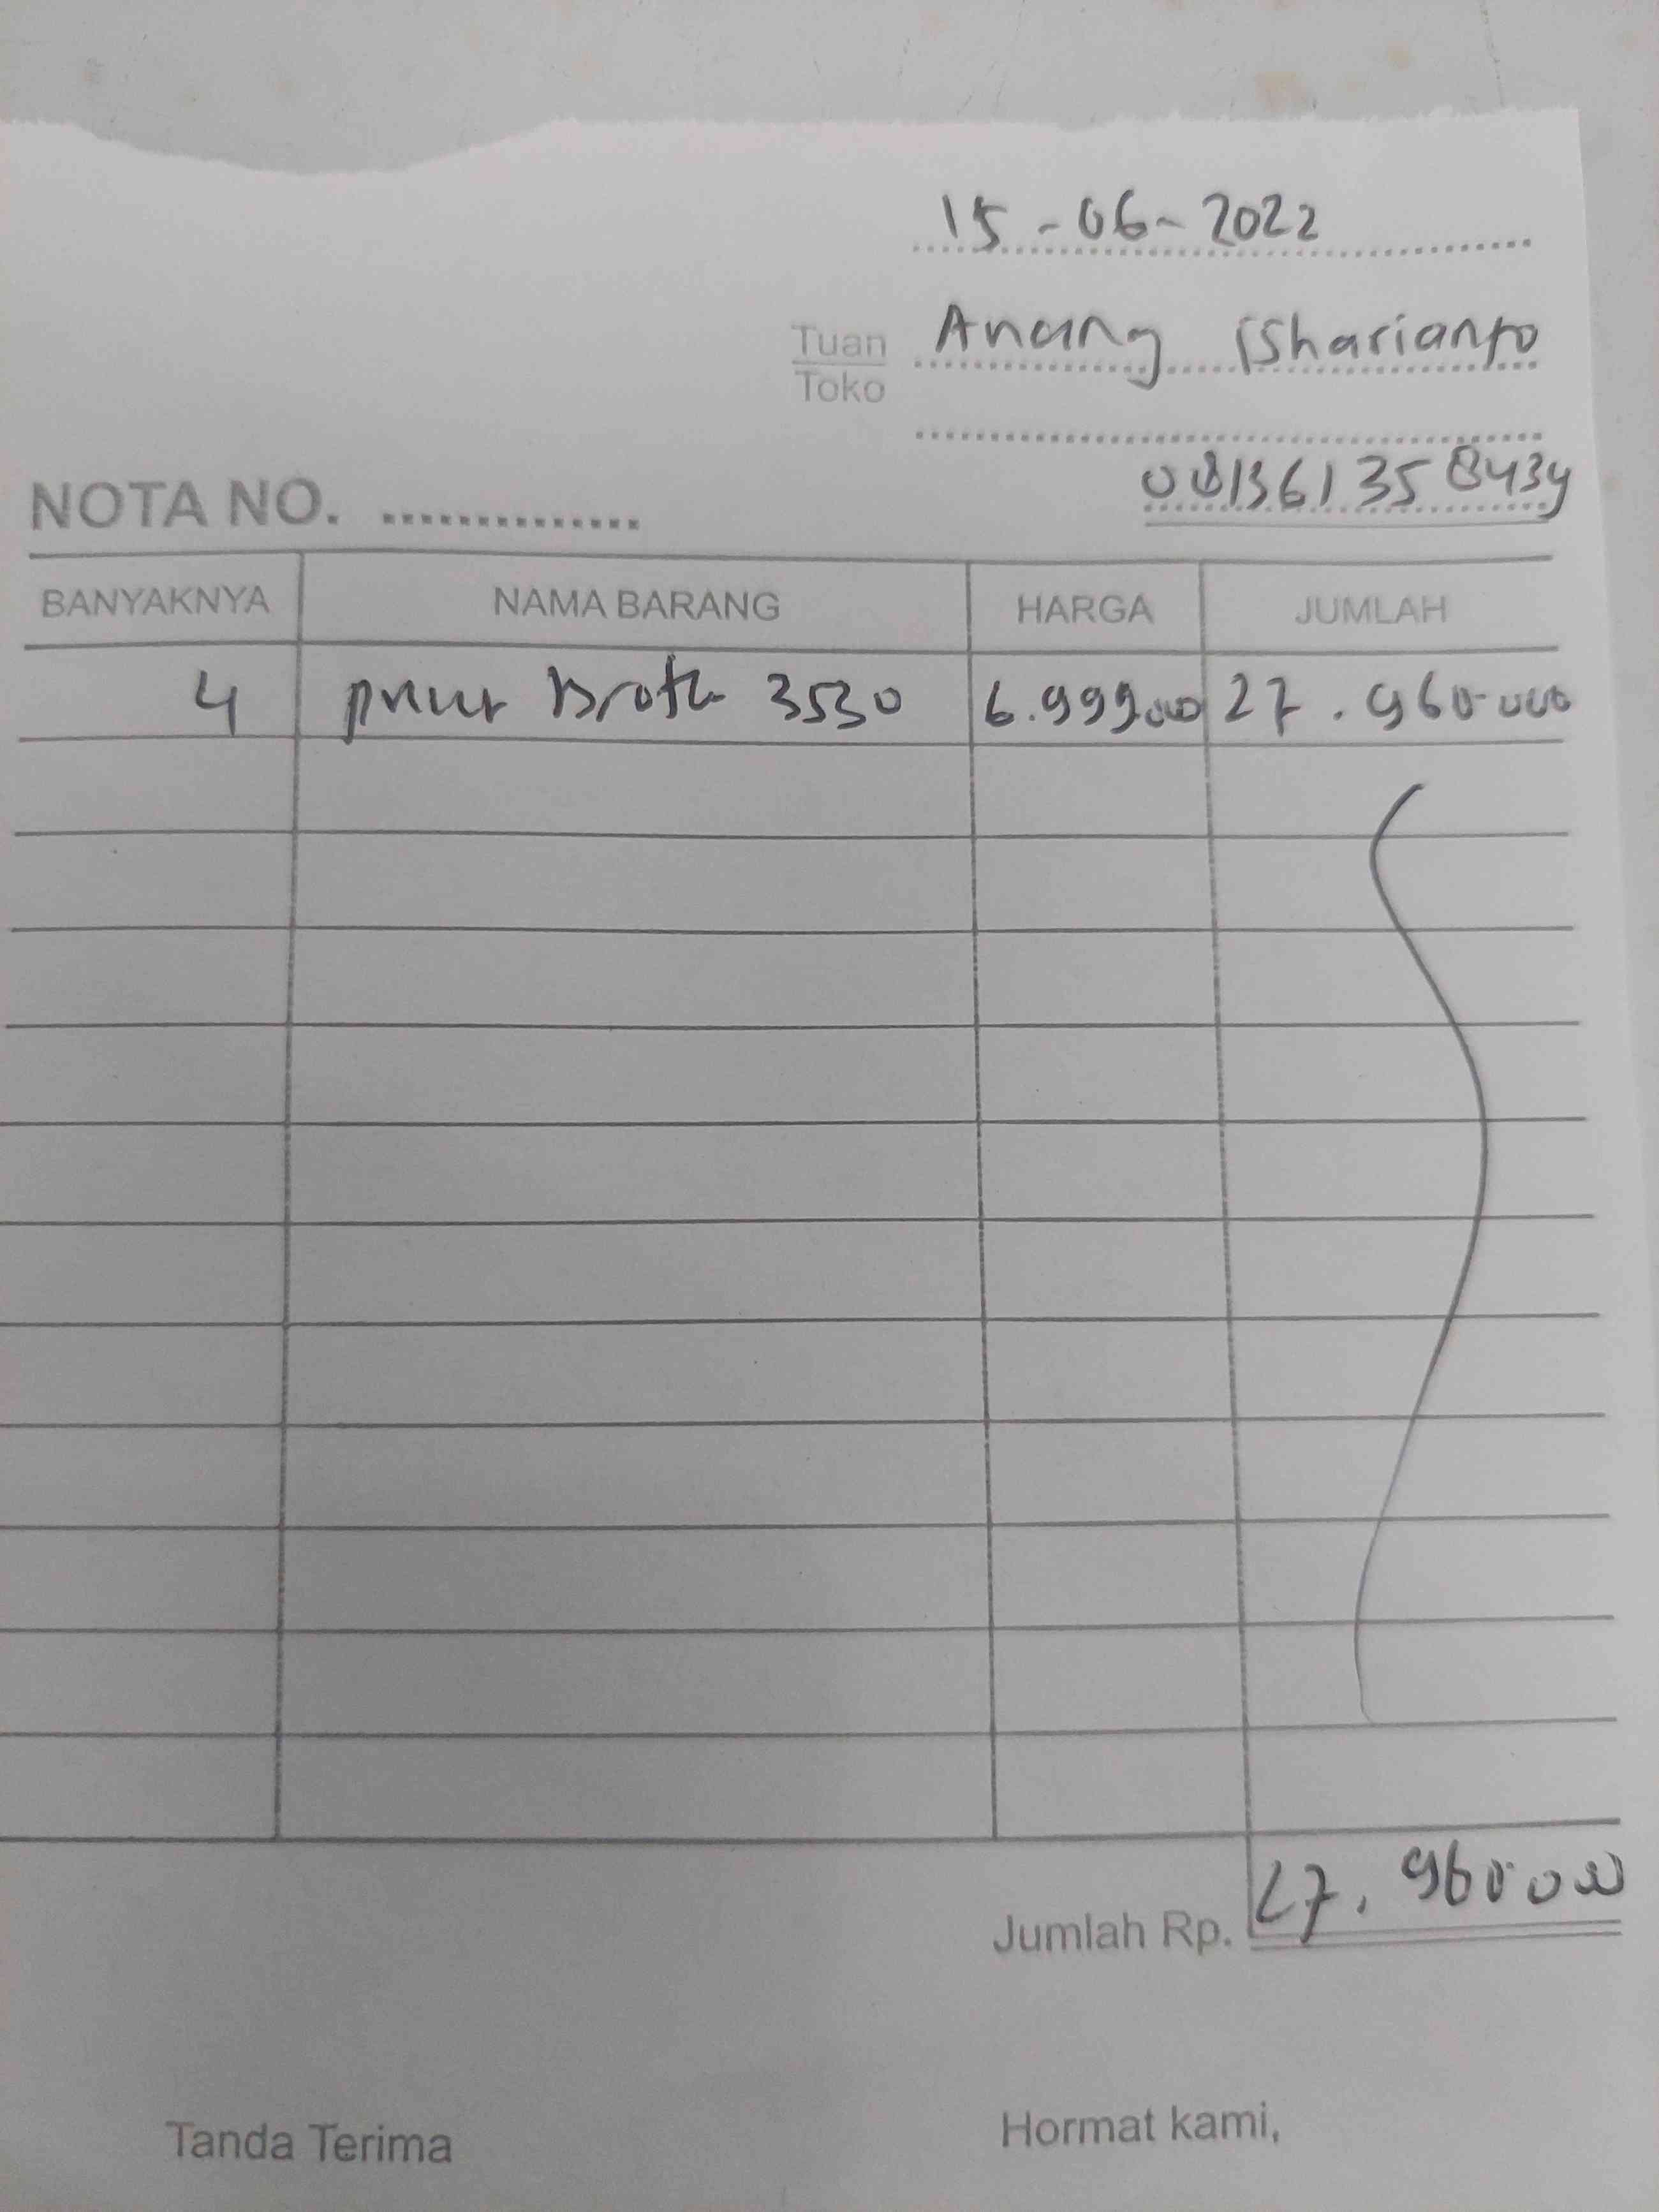 15-06-2022
Tuan Anang isharianto
Toko
081361358434
NOTA NO. ..............
BANYAKNYA NAMA BARANG HARGA JUMLAH
4 3530 6.999.000 27.960.000
Jumlah Rp. 27.960.000
Tanda Terima Hormat kami,